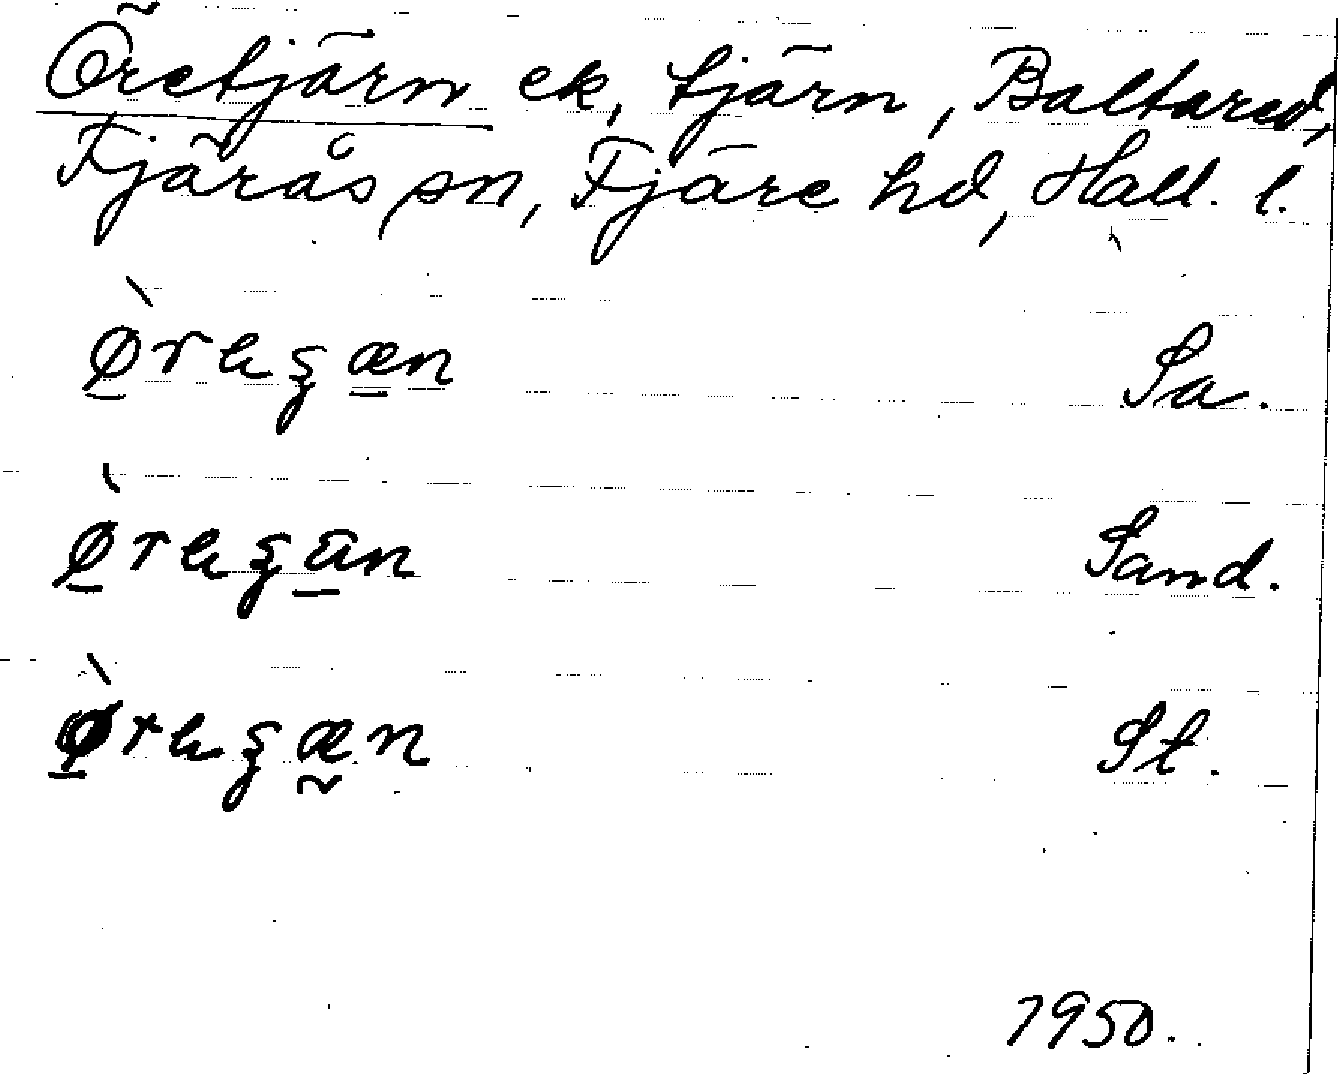 Öretjärn ek, tjärn, Baltared,
Fjärås sn, Fjäre hd, Hall. l.
Sa.
Sand.
St.
1950.